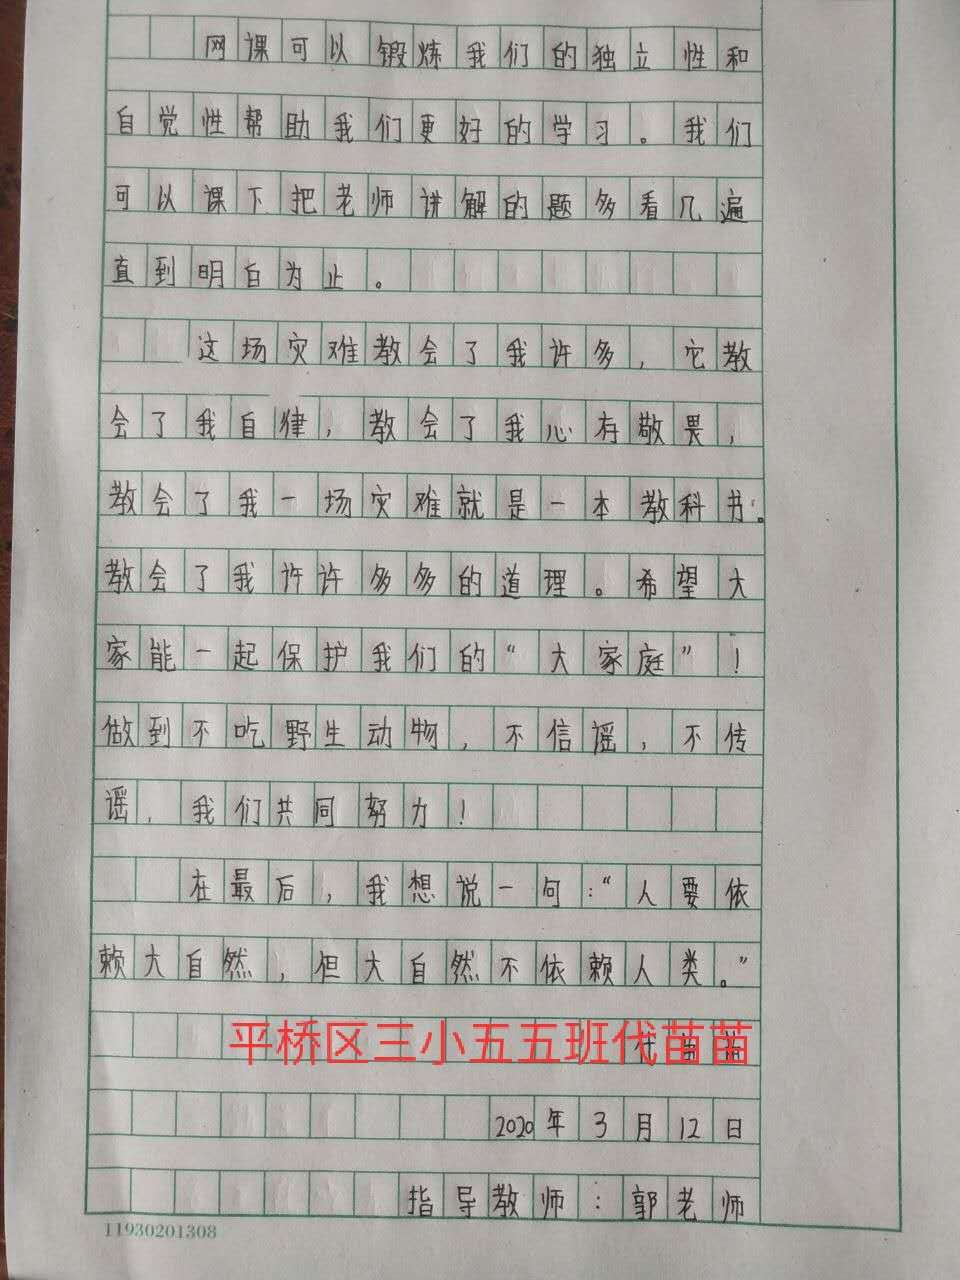 网课可以锻炼我们的独立性和
自觉性帮助我们更好的学习。我们
可以课下把老师讲解的题多看几遍
直到明白为止。
这场灾难教会了我许多，它教
会了我自律，教会了我心有敬畏，
教会了我一场灾难就是一本教科书。
教会了我许许多多的道理。希望大
家能一起保护我们的“大家庭”！
做到不吃野生动物，不信谣，不传
谣，我们共同努力！
在最后，我想说一句：“人要依
赖大自然，但大自然不依赖人类。”
平桥区三小五五班代苗苗
2020年3月12日
指导教师：郭老师
11930201308